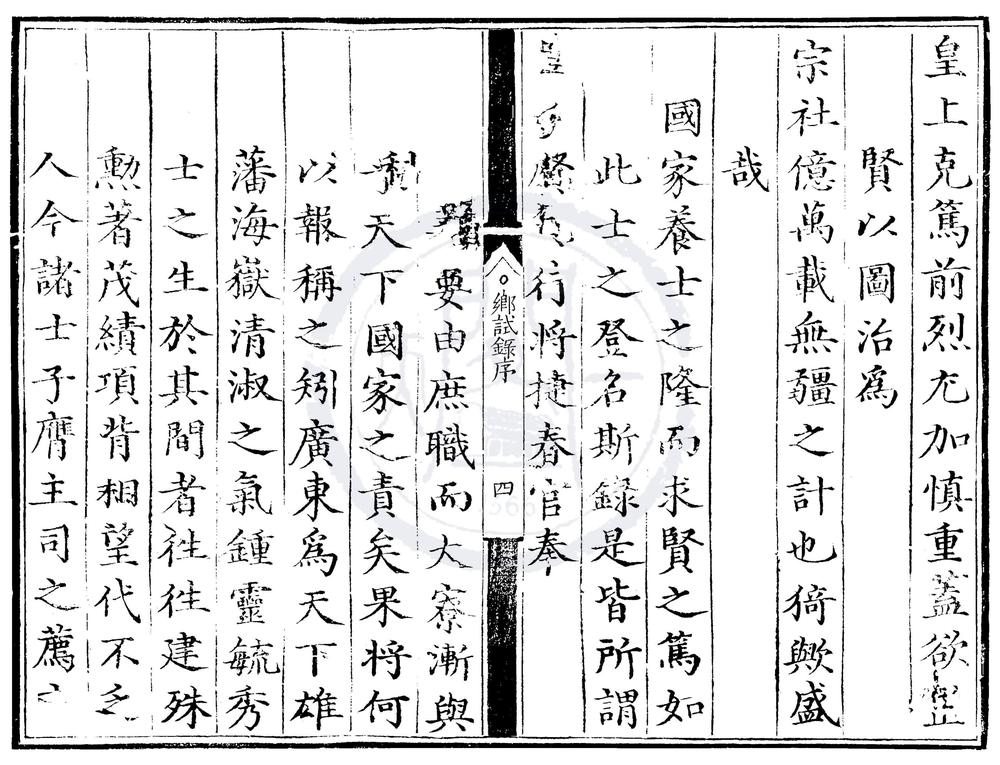 皇上克篤前烈尤加慎重蓋欲
賢以圖治爲
宗社億萬載無疆之計也猗歟盛
哉
國家養士之隆而求賢之篤如
此士之登名斯錄是皆所謂
行將捷春官奉
鄉試錄序
四
要由庶職而大寮漸與
天下國家之責矣果將何
以報稱之矧廣東爲天下雄
藩海嶽清淑之氣鍾靈毓秀
士之生於其間者往往建殊
勲著茂績項背相望代不乏
人今諸士子膺主司之薦